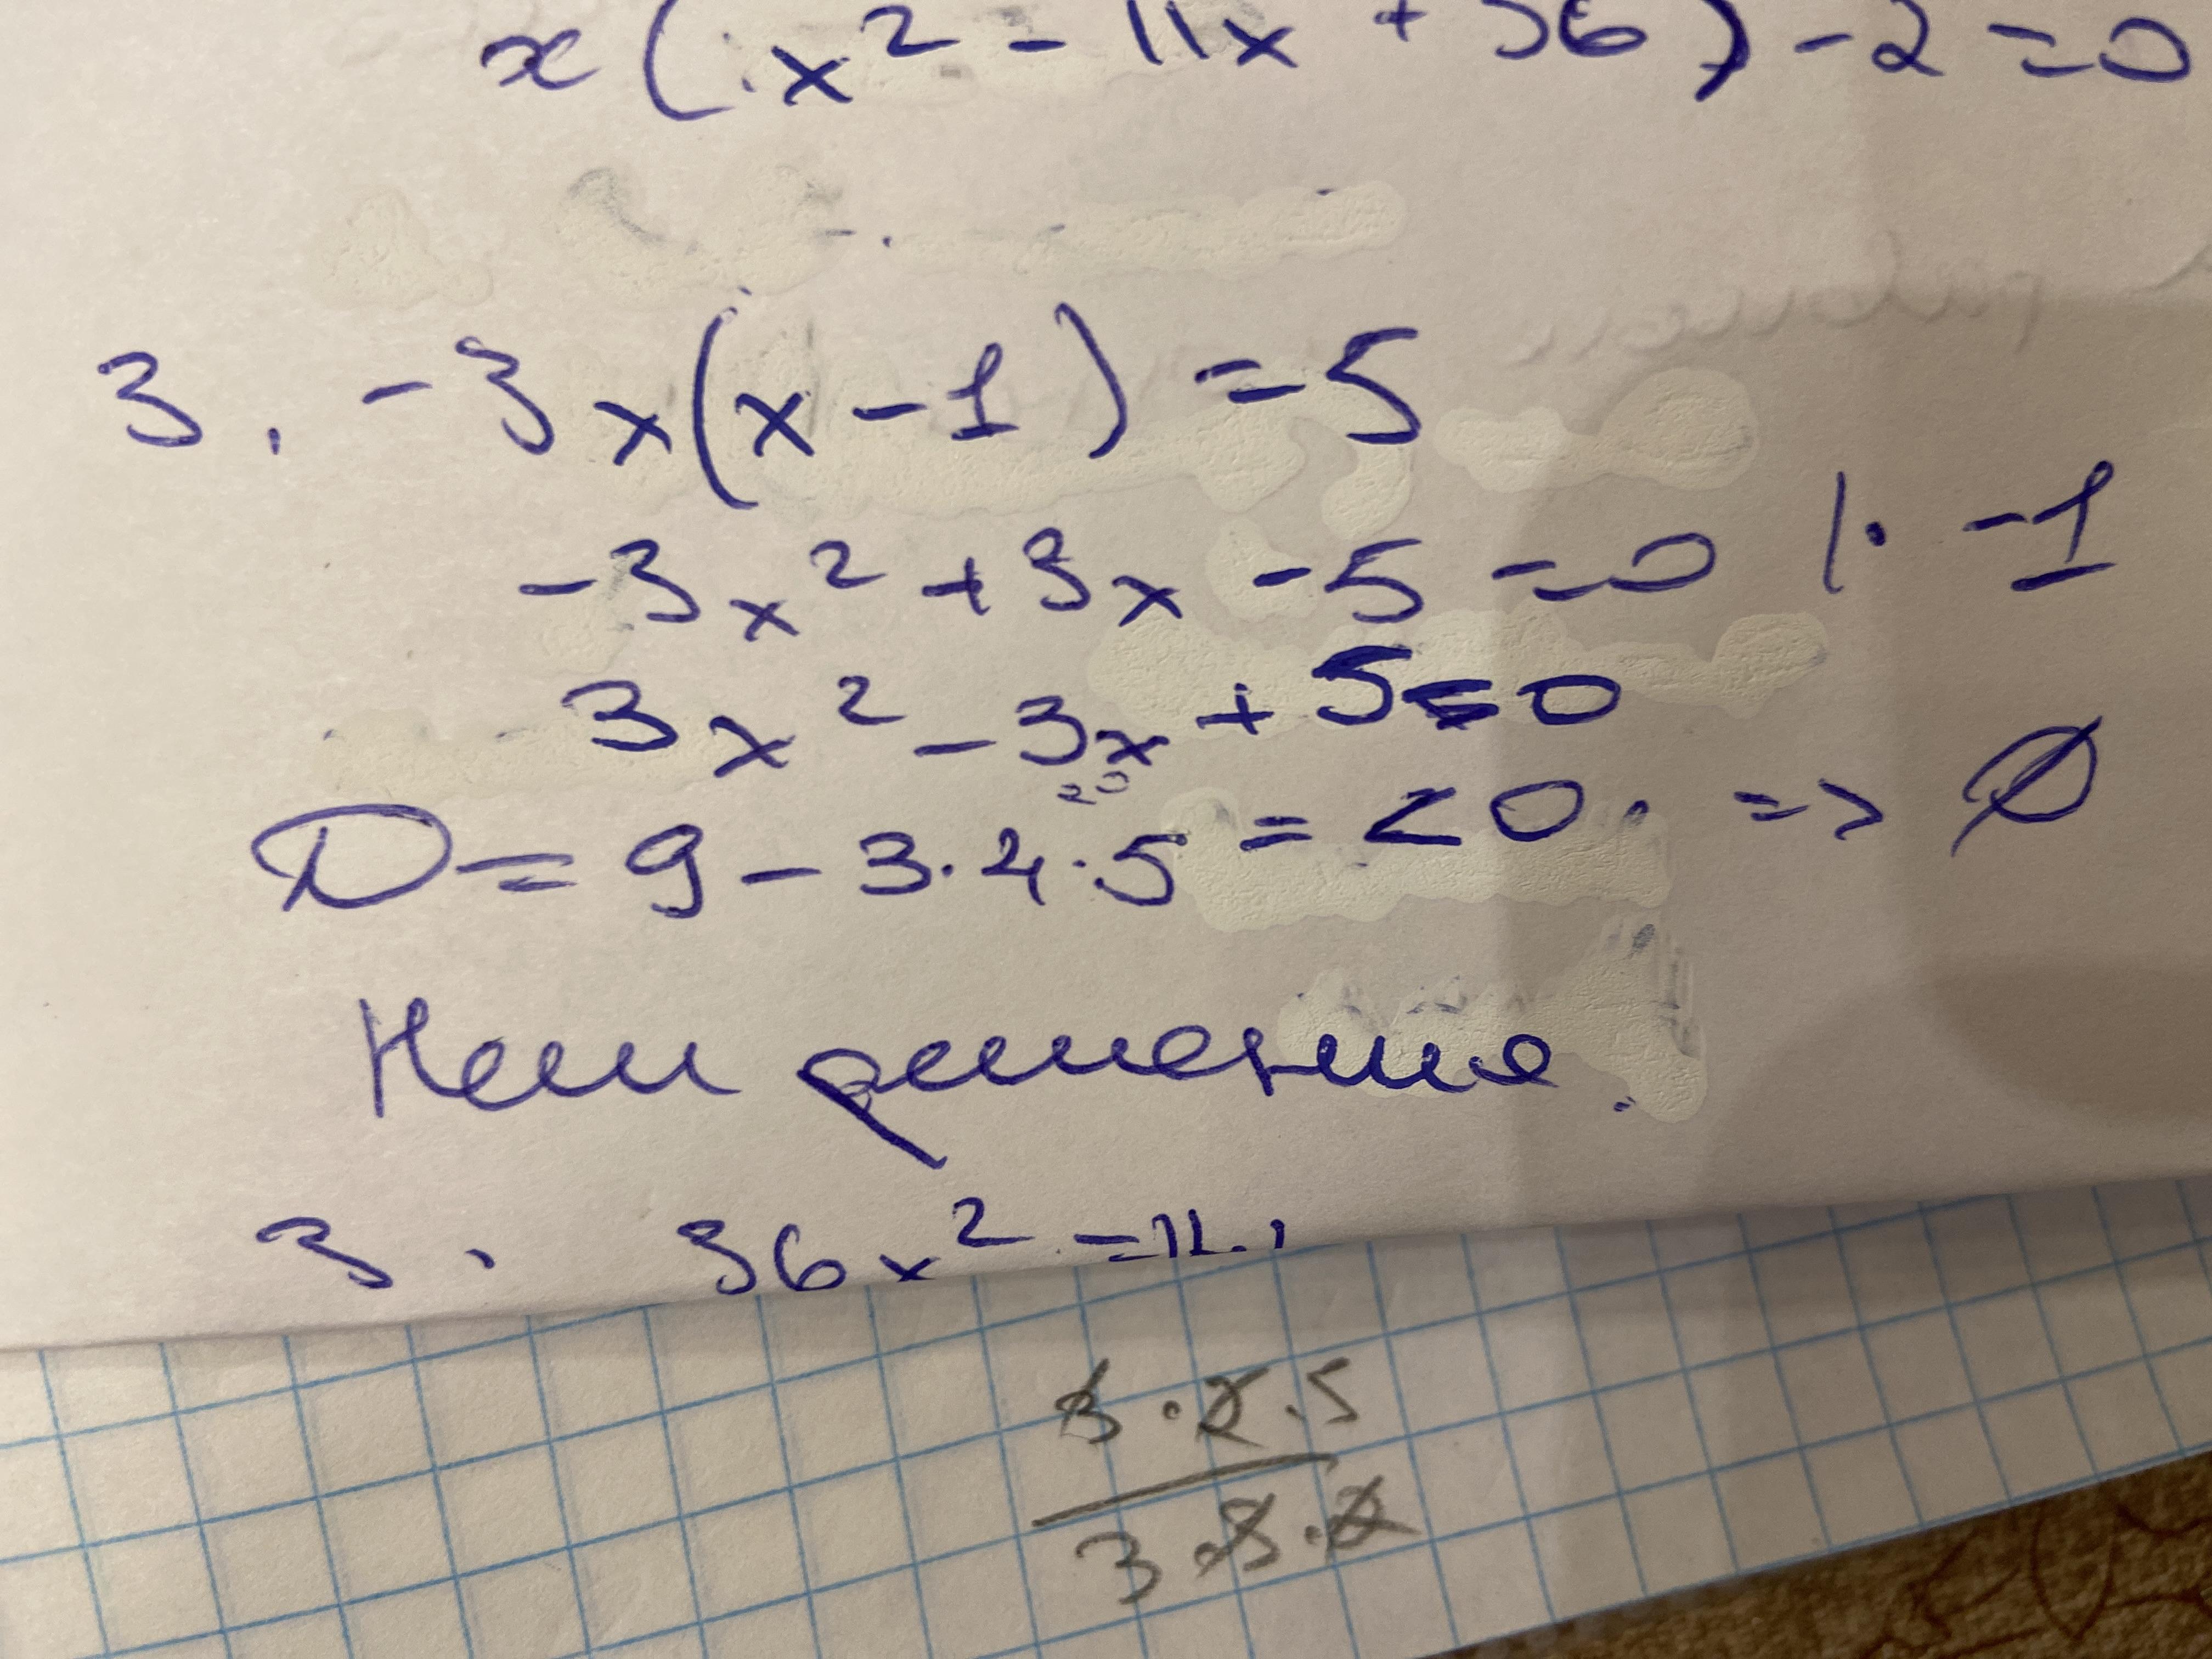 x(x² - 11x + 36) - 2 = 0
3. -3x(x-1) = 5
-3x² + 3x - 5 = 0 |· -1
3x² - 3x + 5 = 0
20
D = 9 - 3·4·5 = <0. => Ø
Нет решения.
3. 36x² = 11
3·2·5
3·5·2